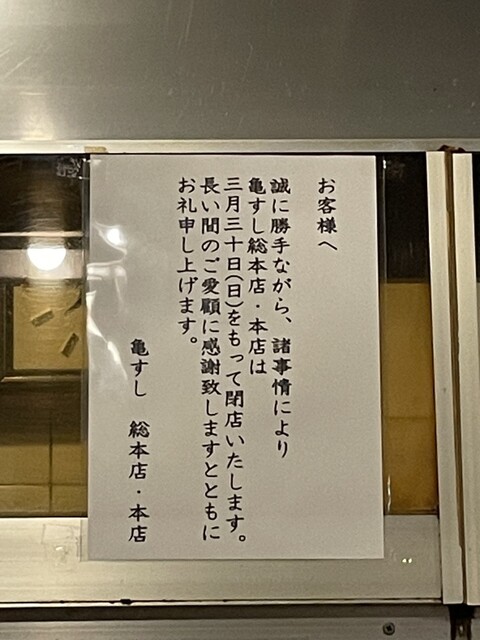 お客様へ
誠に勝手ながら、諸事情により
亀すし総本店・本店は
三月三十日(日)をもって閉店いたします。
長い間のご愛顧に感謝致しますとともに
お礼申し上げます。
亀すし　総本店・本店